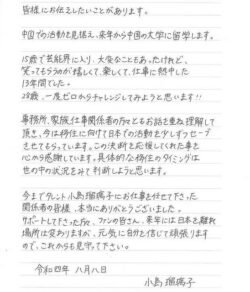 皆様にお伝えしたいことがあります。
中国での活動を見据え、来年から中国の大学に留学します。
15歳で芸能界に入り、大変なこともあったけれど、
笑ってもらうのが嬉しくて、楽しくて、仕事に熱中した
13年間でした。
28歳、一度ゼロからチャレンジしてみようと思います!!
事務所、家族、仕事関係者の方々ともお話を重ね理解して
頂き、今は移住に向けて日本での活動を少しずつセーブ
させてもらっています。この決断を応援してくれた事を
心から感謝しています。具体的な移住のタイミングは
世の中の状況をみて判断しようと思います。
今までタレント小島瑠璃子にお仕事を任せて下さった
関係者の皆様、本当にありがとうございました。
サポートして下さった方々、ファンの皆さん、来年には日本を離れ
場所は変わりますが、元気に自分を信じて頑張ります
ので、これからも見守って下さい。
令和四年 八月八日
小島瑠璃子